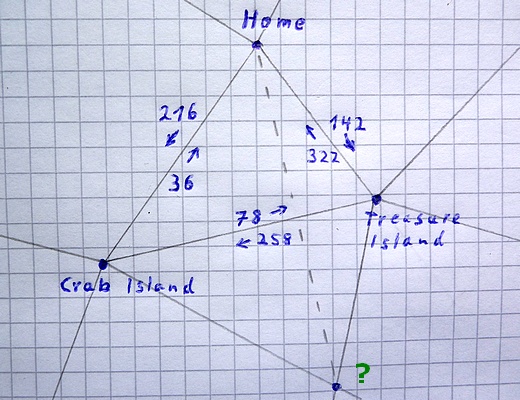 Home
216
142
322
36
78
258
Treasure
Island
Crab Island
?